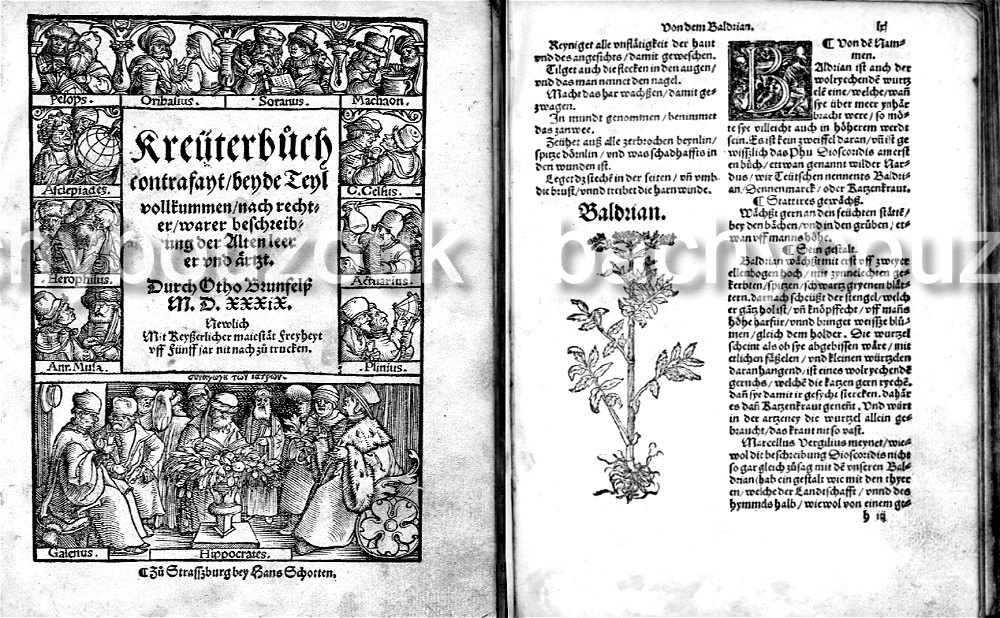 Pelops. Oribasius. Soranus. Machaon.
Asclepiades.
C. Celsus.
Herophilus.
Actuarius.
Ant. Musa.
Plinius.
Kreüterbůch
contrafayt/beyde Teyl
vollkummen/nach recht-
er/warer beschreib-
ung der Alten leer
er vnd ärtzt.
Durch Otho Brunfelß
M. D. XXXIX.
Newlich
Mit Keyßerlicher maiestät Freyheyt
vff Fünff jar nit nach zů trucken.
Galenus. Hippocrates.
¶ Zů Strasszburg bey Hans Schotten.
Von dem Baldrian.
Reyniget alle vnstätigkeit der haut
vnd des angesichts/damit geweschen.
Tilget auch die flecken in den augen/
vnd das man nennet den nagel.
Macht das har wachßen/damit ge-
zwagen.
In mundt genommen/benimmet
das zanwee.
Zeüher auß alle zerbrochen beynlin/
spitze dörnlin/vnd was schadhafftis in
den wunden ist.
Legerdz stechē in der seiten/vñ vmb
die brust/vnnd treibet die harnwinde.
Baldrian.
¶ Von dē Nam-
men.
BAldrian ist auch der
wolryechendē wurtz
elē eine/welche/wañ
sye über meer ynhär
bracht were/so mö-
te sye villeicht auch in höherem werdt
sein. Es ist kein zweiffel daran/vñ ist ge-
wisslich das Phu Dioscoridis am erst
en bůch/ettwan genannt wilder Nar-
dus/wir Teütschen nennents Baldri-
an/Dennenmarck/oder Katzenkraut.
¶ Stattires gewächß.
Wächßt gern an den feüchten stätte/
bey den bächen/vnd in den grüben/et-
wan vff manns höhe.
¶ Sein gestalt.
Baldrian wächßt mit erst vff zweyer
ellenbogen hoch/mit zynnelechten ge-
kerbten/spitzen/schwartz gryenen blät-
tern. darnach scheüßt der stengel/welch
er gātz hol ist/vñ knöpffecht/vff mañs
höhe harfür/vnnd bringet weissze blů-
men/gleich dem holder. Die wurtzel
scheint als ob sye abgebissen wäre/mit
etlichen fäßelen/vnd kleinen würtzelen
daran hangend/ist eines wolryechend
geruchs/welchē die katzen gern ryechē.
dañ sye damit ir gesycht stercken. dahär
es dañ Katzenkraut genent. Vnd würt
in der artzeney die wurtzel allein ge-
braucht/das kraut nit so vast.
Marcellus Vergilius meynet/wie-
wol dit beschreibung Dioscoridis nicht
so gar gleich zůsag mit dē vnseren Bal-
drian/hab ein gestalt wie mit den thyer
en/welche der Landtschafft/vnnd des
hymmels halb/wiewol von einem ge-
h iij